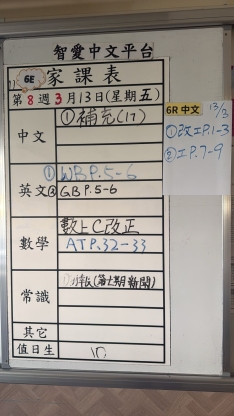 智愛中文平台
6E
家課表
第8週3月13日(星期五)
中文
①補充(17)
①WB P.5-6
英文② GB P.5-6
數學
數上C改正
AT P.32-33
常識
(第十期新聞)
其它
值日生
6R 中文 13/3
①改工P.1-3
②工P.7-9